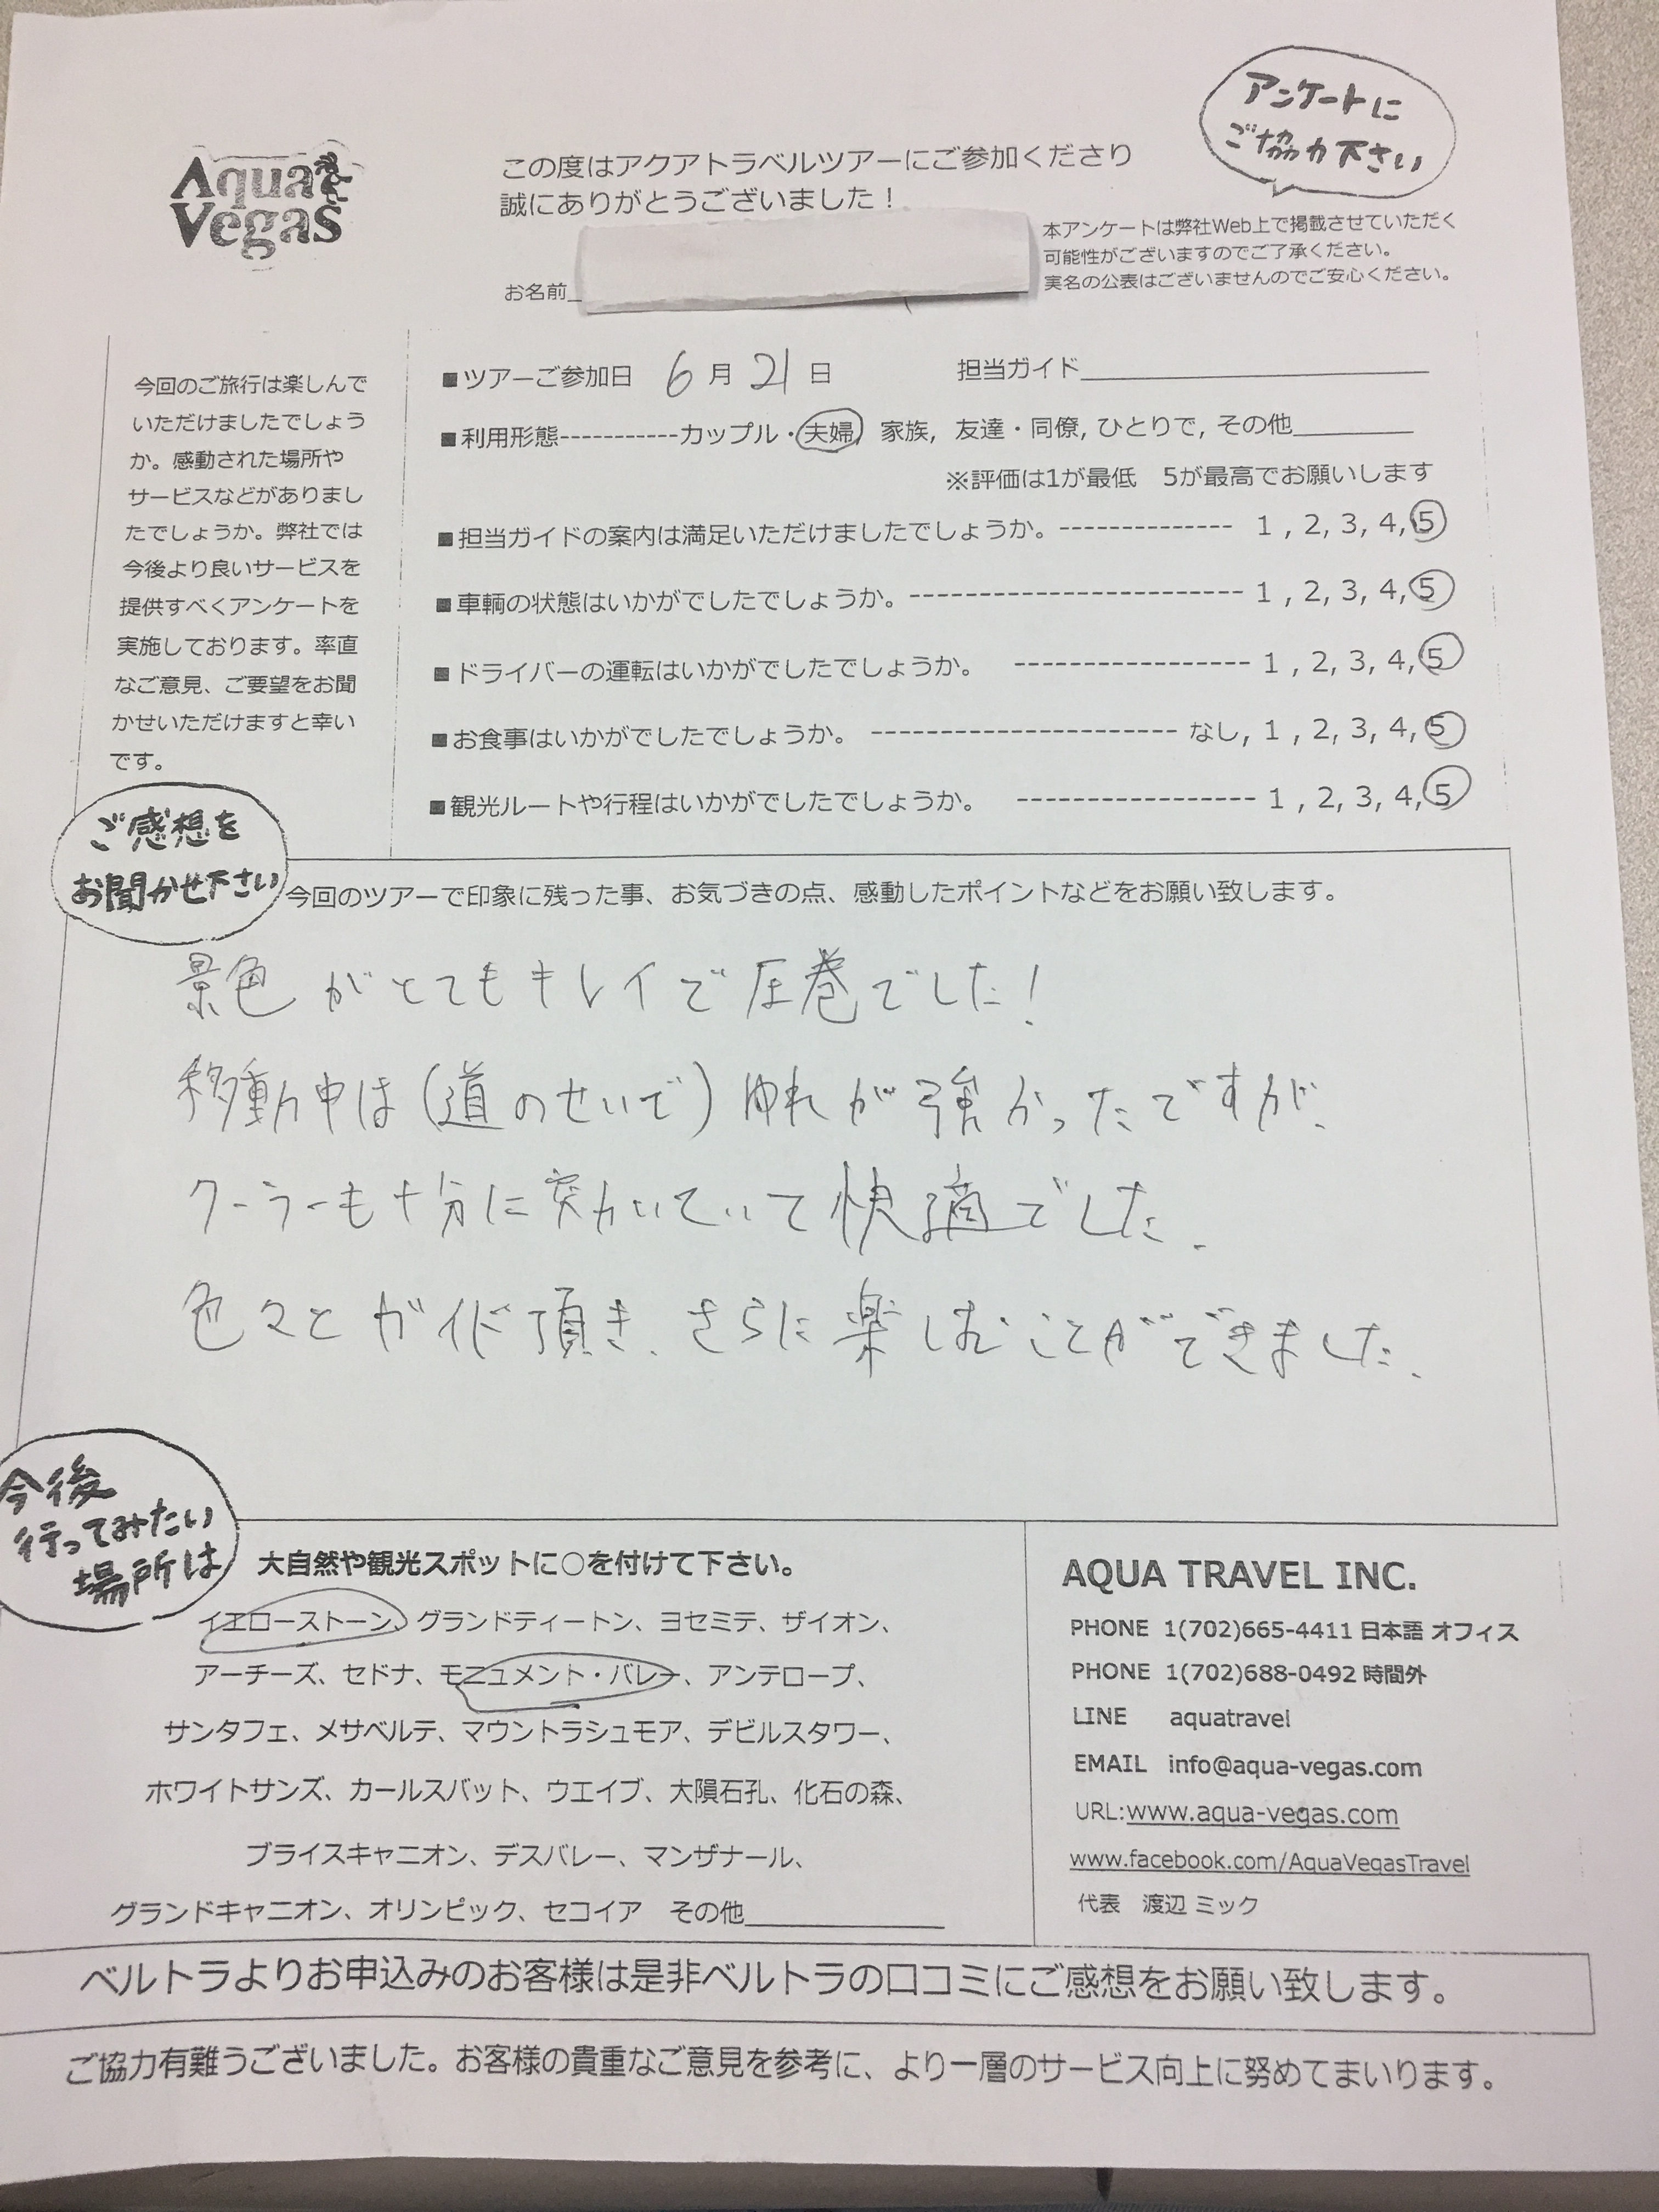 Aqua
Vegas
この度はアクアトラベルツアーにご参加くださり
誠にありがとうございました！
アンケートに
ご協力下さい
本アンケートは弊社Web上で掲載させていただく
可能性がございますのでご了承ください。
実名の公表はございませんのでご安心ください。
お名前
今回のご旅行は楽しんで
いただけましたでしょう
か。感動された場所や
サービスなどがありまし
たでしょうか。弊社では
今後より良いサービスを
提供すべくアンケートを
実施しております。率直
なご意見、ご要望をお聞
かせいただけますと幸い
です。
■ツアーご参加日 6 月 21 日 担当ガイド
■利用形態-----------カップル・夫婦, 家族, 友達・同僚, ひとりで, その他
※評価は1が最低 5が最高でお願いします
■担当ガイドの案内は満足いただけましたでしょうか。-------------- 1 , 2, 3, 4, 5
■車輌の状態はいかがでしたでしょうか。------------------------ 1 , 2, 3, 4, 5
■ドライバーの運転はいかがでしたでしょうか。 ----------------- 1 , 2, 3, 4, 5
■お食事はいかがでしたでしょうか。 ---------------------- なし, 1 , 2, 3, 4, 5
■観光ルートや行程はいかがでしたでしょうか。 ----------------- 1 , 2, 3, 4, 5
ご感想を
お聞かせ下さい
今回のツアーで印象に残った事、お気づきの点、感動したポイントなどをお願い致します。
景色がとてもキレイで圧巻でした！
移動中は(道のせいで)ゆれが強かったですが、
クーラーも十分に効いていて快適でした。
色々とガイド頂き、さらに楽しむことができました。
今後
行ってみたい
場所は
大自然や観光スポットに○を付けて下さい。
イエローストーン、グランドティートン、ヨセミテ、ザイオン、
アーチーズ、セドナ、モニュメント・バレー、アンテロープ、
サンタフェ、メサベルテ、マウントラシュモア、デビルスタワー、
ホワイトサンズ、カールスバット、ウエイブ、大隕石孔、化石の森、
ブライスキャニオン、デスバレー、マンザナール、
グランドキャニオン、オリンピック、セコイア その他
AQUA TRAVEL INC.
PHONE 1(702)665-4411 日本語 オフィス
PHONE 1(702)688-0492 時間外
LINE aquatravel
EMAIL info@aqua-vegas.com
URL:www.aqua-vegas.com
www.facebook.com/AquaVegasTravel
代表 渡辺 ミック
ベルトラよりお申込みのお客様は是非ベルトラの口コミにご感想をお願い致します。
ご協力有難うございました。お客様の貴重なご意見を参考に、より一層のサービス向上に努めてまいります。